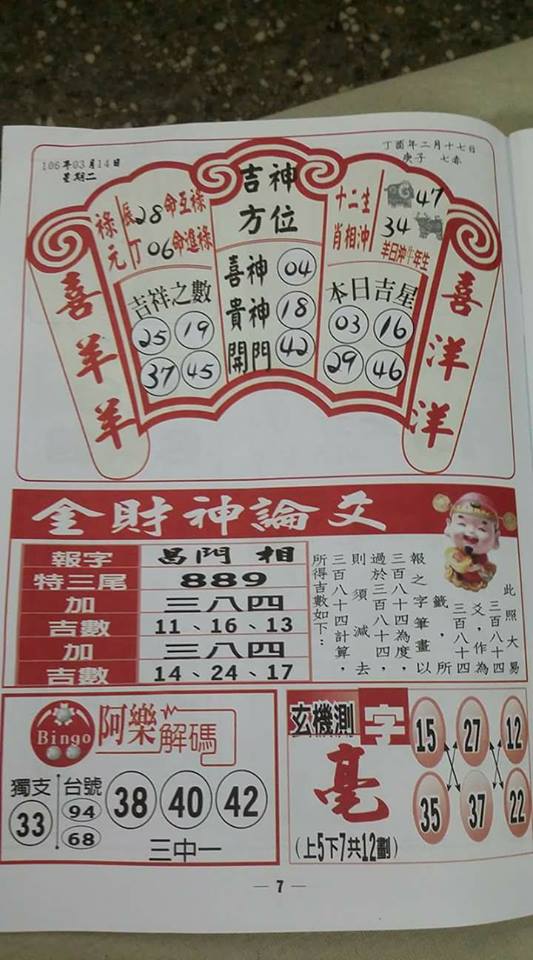 106年03月14日
星期二
丁酉年二月十七日
庚子 七赤
祿元
辰28命互祿
丁06命進祿
吉神
方位
十二生
肖相沖
47
34
羊日沖牛年生
喜羊羊
吉祥之數
25 19
37 45
喜神 04
貴神 18
開門 42
本日吉星
03 16
29 46
喜洋洋
金財神論爻
報字 昌門 相
特三尾 889
加 三八四
吉數 11、16、13
加 三八四
吉數 14、24、17
此照大易
三百八十四
爻,作為
三百八十四
籤,所
報之字筆畫以
三百八十四為度,
過於三百八十四,
則須減去
三百八十四計算,
所得吉數如下:
Bingo
阿樂解碼
獨支
33
台號
94
68
38 40 42
三中一
玄機測字
亳
(上5下7共12劃)
15 27 12
35 37 22
— 7 —